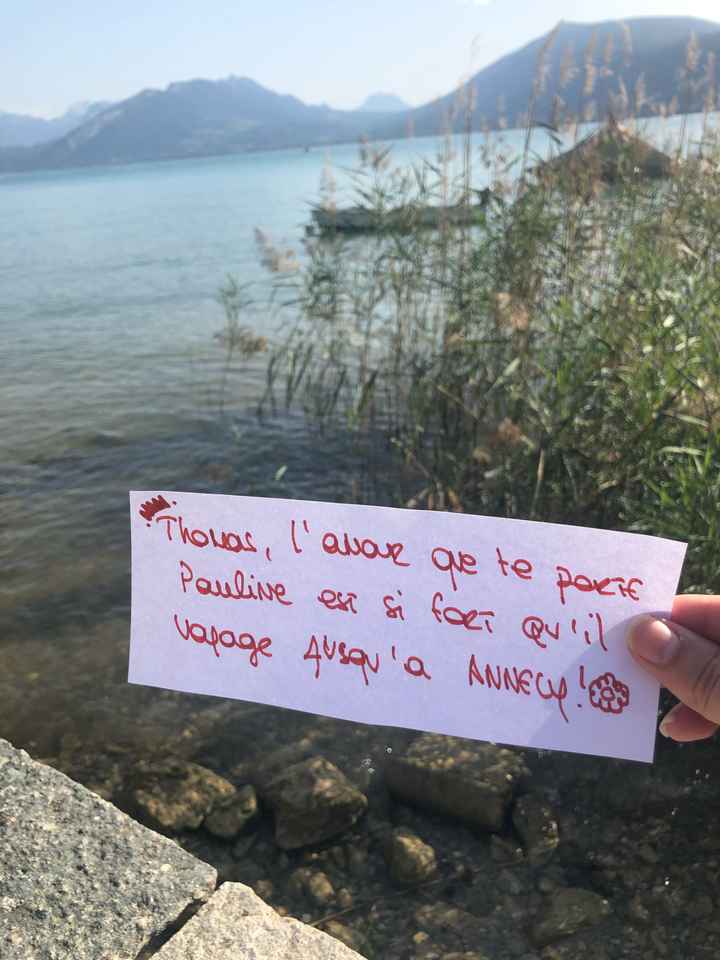 Thomas, l'amour que te porte
Pauline est si fort qu'il
voyage jusqu'a ANNECY!